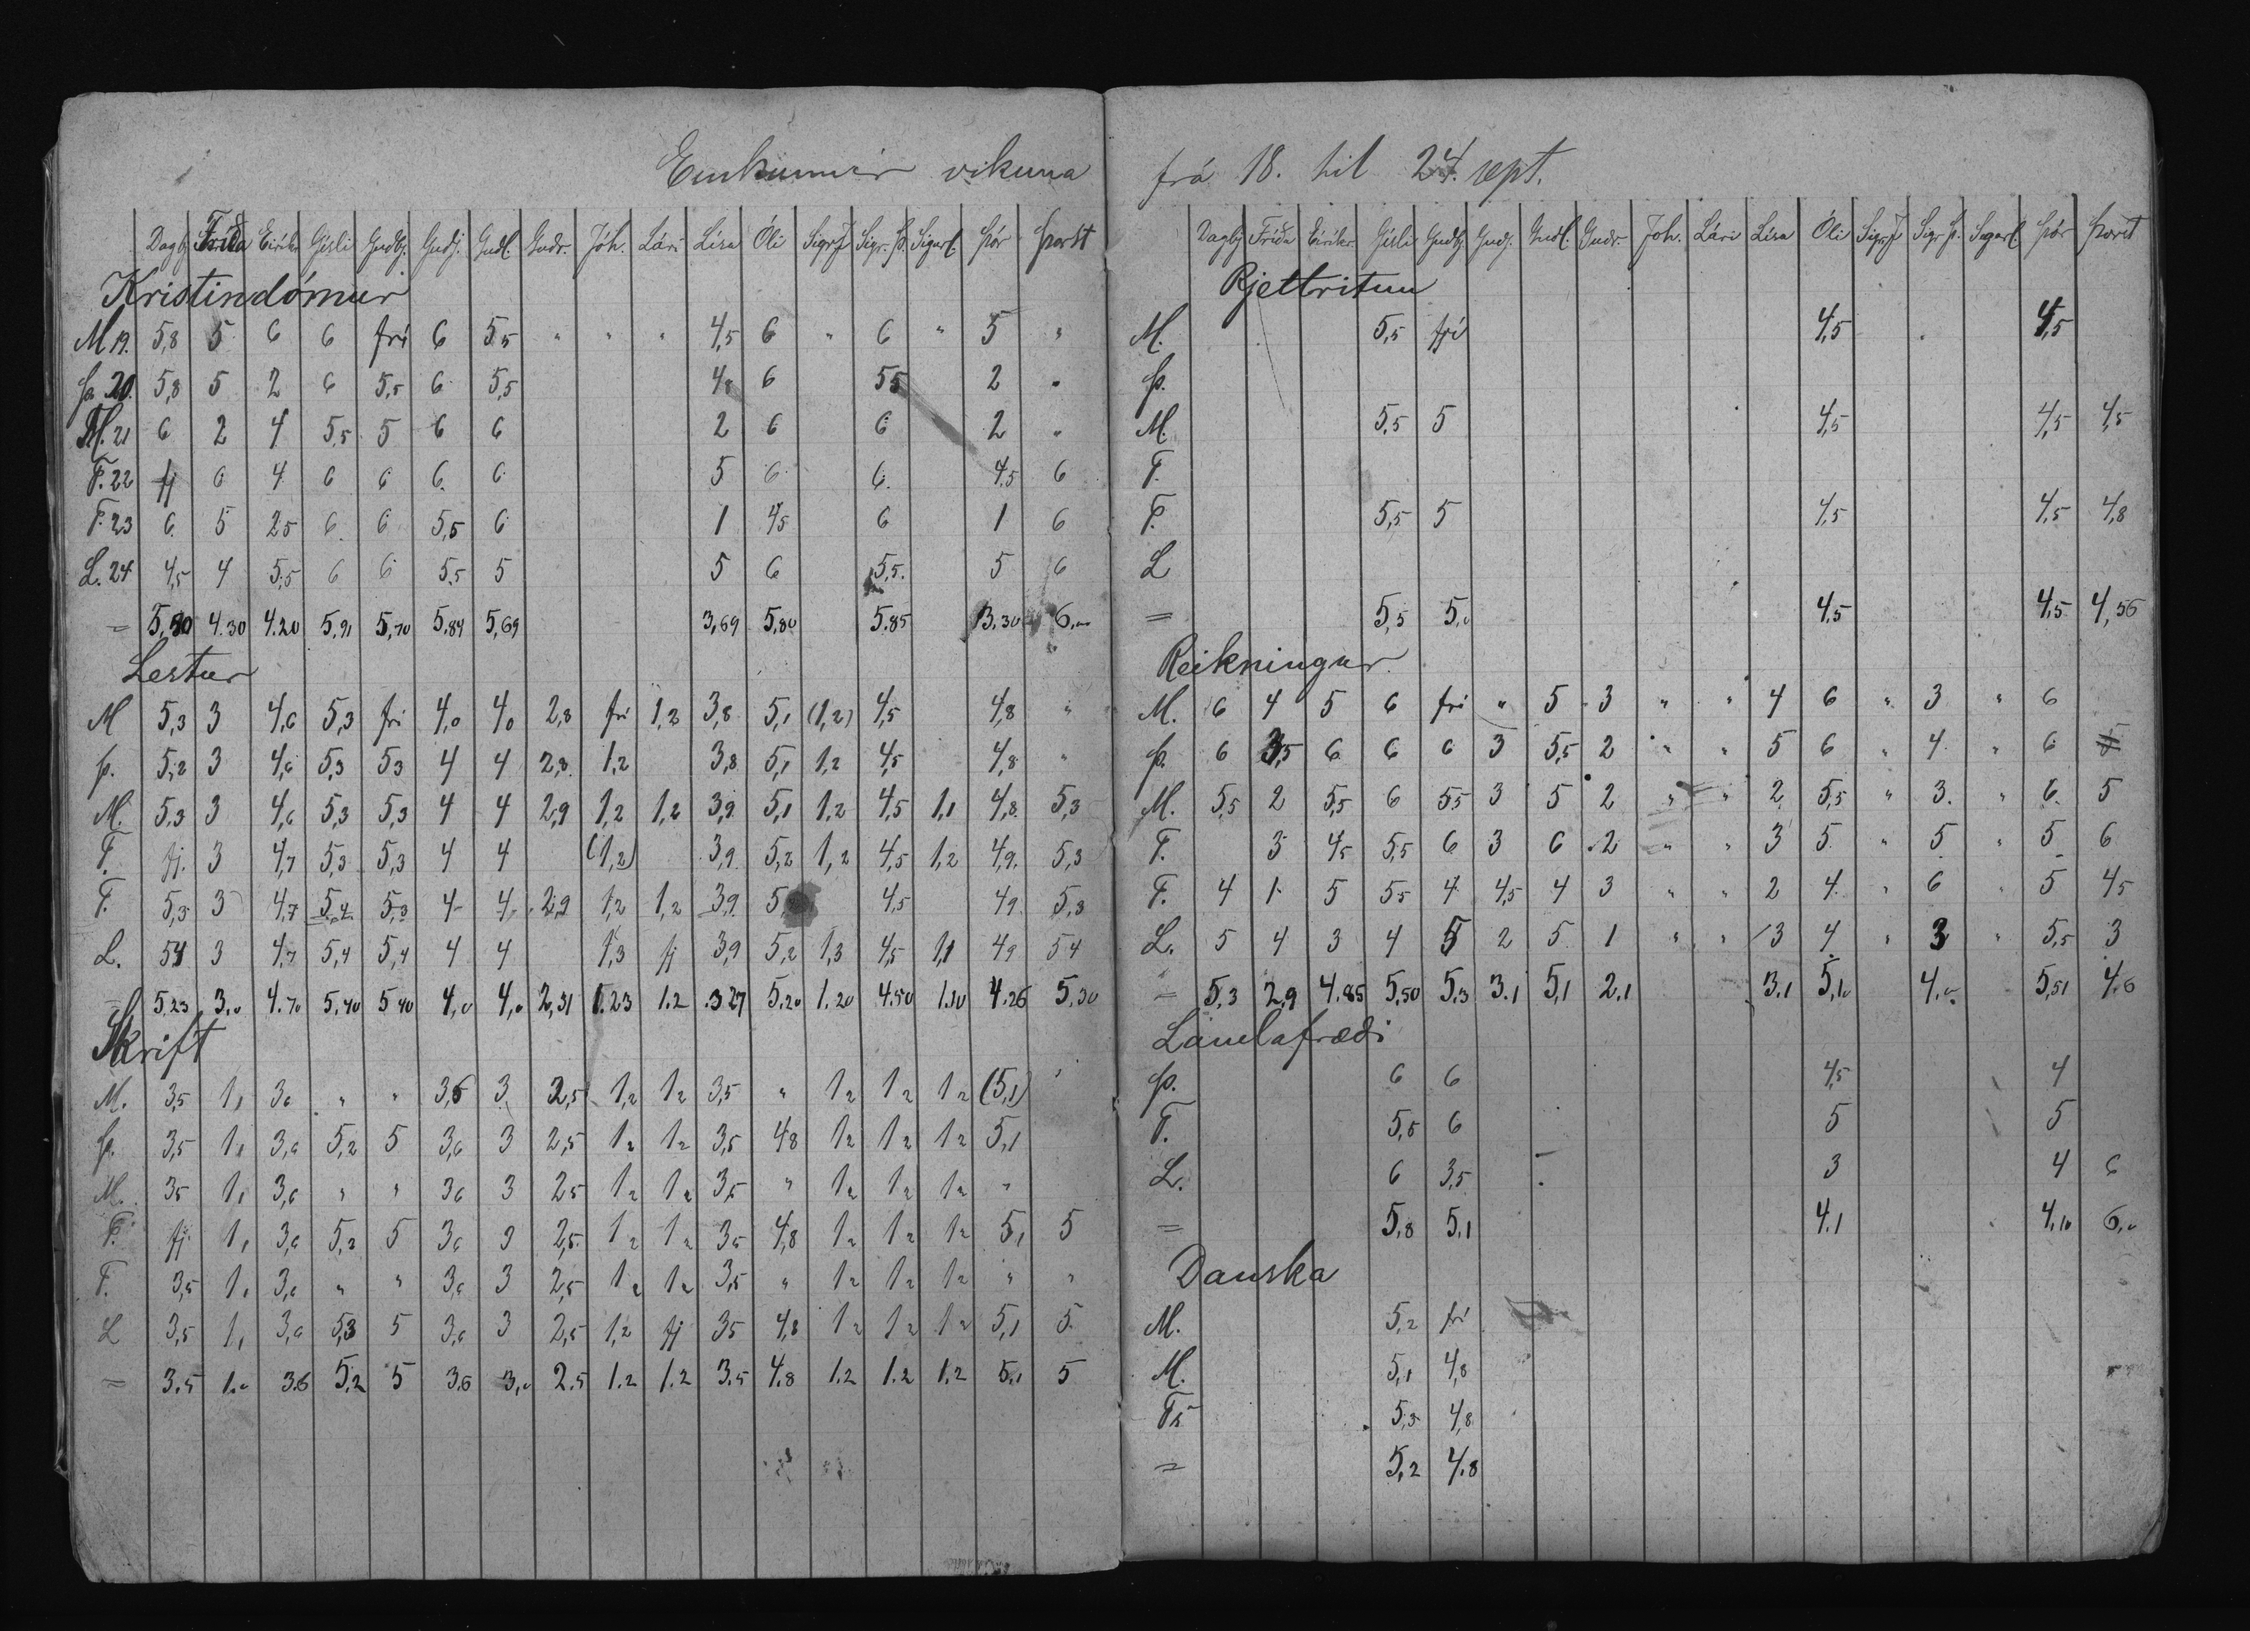 Einkunnir vikuna
Dagbj Fríða Eiríkr Gísli Guðbj. Guðj. Guðl. Guðr. Jóh. Lári Lísa Óli SigrJ Sigr. Þ. Sigurl. Þór Þorst
Kristindómur
M 19. 5,8 5 6 6 frí 6 5,5 " " " 4,5 6 " 6 " 5 "
Þ. 20. 5,8 5 2 6 5,5 6 5,5 4,8 6 55 2 "
M. 21 6 2 4 5,5 5 6 6 2 6 6 2 "
F. 22 fj 6 4 6 6 6 6 5 6 6. 4,5 6
F. 23 6 5 25 6 6 5,5 6 1 45 6 1 6
L. 24 4,5 4 5,5 6 6 5,5 5 5 6 5,5. 5 6
= 5,50 4.30 4.20 5,91 5,70 5.84 5,69 3,69 5,80 5.85 3.30 6,00
Lestur
M 5,3 3 4,6 5,3 frí 4,0 4,0 2,8 frí 1,2 3,8 5,1 (1,2) 4,5 4,8 "
Þ. 5,2 3 4,6 5,3 53 4 4 2,8 1,2 3,8 5,1 1,2 4,5 4,8 "
M. 5,3 3 4,6 5,3 5,3 4 4 2,9 1,2 1,2 3,9 5,1 1,2 4,5 1,1 4,8 5,3
F. fj. 3 4,7 5,3 5,3 4 4 (1,2) 3,9 5,2 1,2 4,5 1,2 4,9. 5,3
F. 5,3 3 4,7 5,4 5,3 4 4 2,9 1,2 1,2 3,9 5, 4,5 49 5,3
L. 54 3 4,7 5,4 5,4 4 4 1,3 fj 3,9 5,2 1,3 4,5 1,1 49 54
= 5.23 3,0 4.70 5,40 5 40 4,0 4,0 2,31 1.23 1.2 3 27 5,20 1.20 4.50 1.10 4.26 5,30
Skrift
M. 3,5 1, 36 " " 3,6 3 2,5 1,2 12 3,5 " 12 12 12 (5,1) "
Þ. 3,5 1, 3,6 5,2 5 3,6 3 2,5 12 12 3,5 48 12 12 12 5,1
M. 35 1, 3,6 " " 36 3 25 12 12 3,5 " 12 12 12 "
F. fj 1, 3,6 5,2 5 36 3 2,5 12 12 35 4,8 12 12 12 5,1 5
F. 3,5 1, 3,6 " " 3,6 3 2,5 12 12 3,5 " 12 12 12 " "
L 3,5 1, 3,6 5,3 5 3,6 3 2,5 1,2 fj 35 4,8 12 12 12 5,1 5
= 3.5 1.0 3.6 5.2 5 3.6 3,0 2.5 1.2 1.2 3.5 4.8 1.2 1.2 1.2 5.1 5
frá 18. til 24. sept.
Dagbj Fríða Eiríkr. Gísli Guðbj. Guðj. Guðl. Guðr. Jóh. Lári Lísa Óli SigrJ Sigr Þ. Sigurl Þór Þorst
Rjettritun
M. 5,5 frí 4,5 4,5
Þ.
M. 5,5 5 4,5 4,5 4,5
F.
F. 5,5 5 4,5 4,5 4,8
L
= 5,5 5,0 4,5 4,5 4,56
Reikningur
M. 6 4 5 6 frí " 5 3 " " 4 6 " 3 " 6
Þ. 6 3,5 6 6 6 3 5,5 2 " " 5 6 " 4 " 6
M. 5,5 2 5,5 6 55 3 5 2 " " 2 5,5 " 3. " 6. 5
F. 3 45 5,5 6 3 6 2 " " 3 5 " 5 " 5 6
F. 4 1 5 55 4 4,5 4 3 " " 2 4 " 6 " 5 45
L. 5 4 3 4 5 2 5 1 " " 3 4 " 3 " 5,5 3
= 5,3 2,9 4.85 5,50 5.3 3.1 5,1 2.1 3.1 5,10 4.0 5,51 4.6
Landafræði
Þ. 6 6 4,5 4
F. 5,5 6 5 5
L. 6 3,5 3 4 6
= 5,8 5.1 4.1 4,10 6,0
Danska
M. 5,2 frí
M. 5,1 4,8
Fö 5,3 4,8
= 5,2 4.8